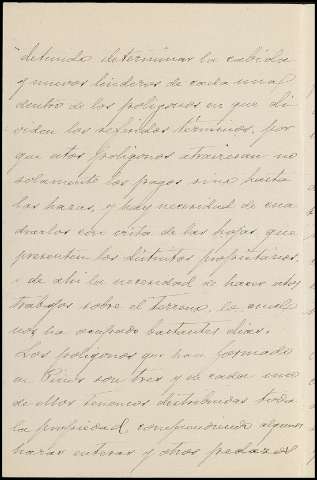 determinar la cabida
y nuevos linderos de cada una
dentro de los poligonos en que di
viden los referidos términos, por
que estos poligonos atraviesan no
solamente los pagos sino hasta
las hazas, y hay necesidad de cua
drarlos con vista de las hojas que
presenten los distintos propietarios,
y de ahi la necesidad de hacer estos
trabajos sobre el terreno, lo cual
nos ha ocupado bastantes dias.
Los poligonos que han formado
en son tres y en cada uno
de ellos tenemos distribuidas toda
la propiedad, comprendiendo algunos
hazas enteras y otros pedazos